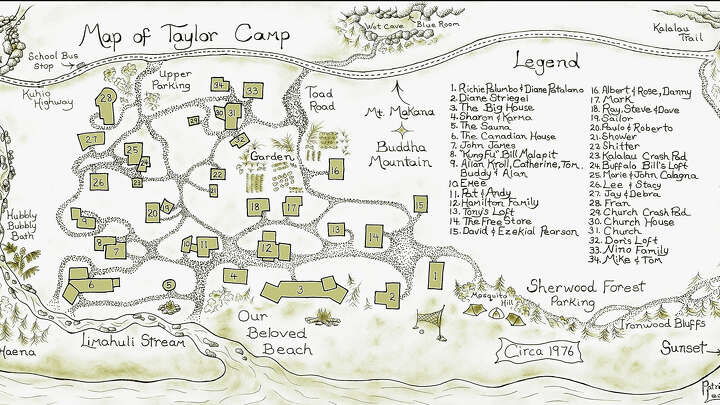 Map of Taylor Camp
Wet Cave
Blue Room
Kalalau
Trail
School Bus
Stop
Kuhio
Highway
Upper
Parking
Toad
Road
Mt. Makana
Buddha
Mountain
Garden
Hubbly
Bubbly
Bath
Haena
Limahuli Stream
Our
Beloved
Beach
Mosquito
Hill
Sherwood Forest
Parking
Ironwood Bluffs
Sunset
Circa 1976
Legend
1. Richie Palumbo & Diane Patalano
2. Diane Striegel
3. The Big House
4. Sharon & Karma
5. The Sauna
6. The Canadian House
7. John Janes
8. "Kung Fu" Bill Malapit
9. Alian Kroll, Catherine, Tom,
Buddy & Alan
10. Emee
11. Pat & Andy
12. Hamilton Family
13. Tony's Loft
14. The Free Store
15. David & Ezekial Pearson
16. Albert & Rose, Danny
17. Mark
18. Ray, Steve & Dave
19. Sailor
20. Paulo & Roberto
21. Shower
22. Shitter
23. Kalalau Crash Pad
24. Buffalo Bill's Loft
25. Marie & John Calagna
26. Lee & Stacy
27. Jay & Debra
28. Fran
29. Church Crash Pad
30. Church House
31. Church
32. Don's Loft
33. Nino Family
34. Mike & Tom
28
34
33
29
30
31
32
27
25
24
23
22
26
21
16
20
19
18
17
15
9
8
7
10
11
12
13
14
6
5
4
3
2
1